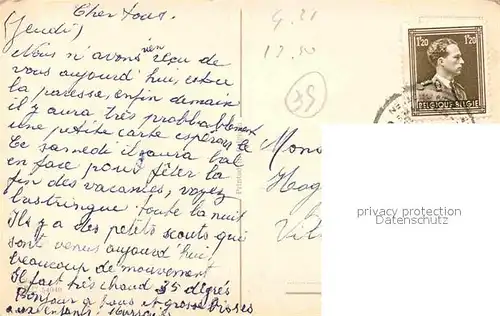 Cher tous.
(Jeudi)
Nous n'avons rien reçu de
vous aujourd'hui, est-ce
la paresse, enfin demain
il y aura très probablement
une petite carte espérons le
Ce samedi il y aura bal
en face pour fêter la
fin des vacances, voyez
bastringue toute la nuit
Ils y a des petits scouts qui
sont venus aujourd'hui,
beaucoup de mouvement
Il fait très chaud 35 degrés
Bonjour a tous et grosse bises
aux enfants:
G. 21
12.50
35
1F20 1F20
BELGIQUE-BELGIË
Mons
Hag
privacy protection
Datenschutz